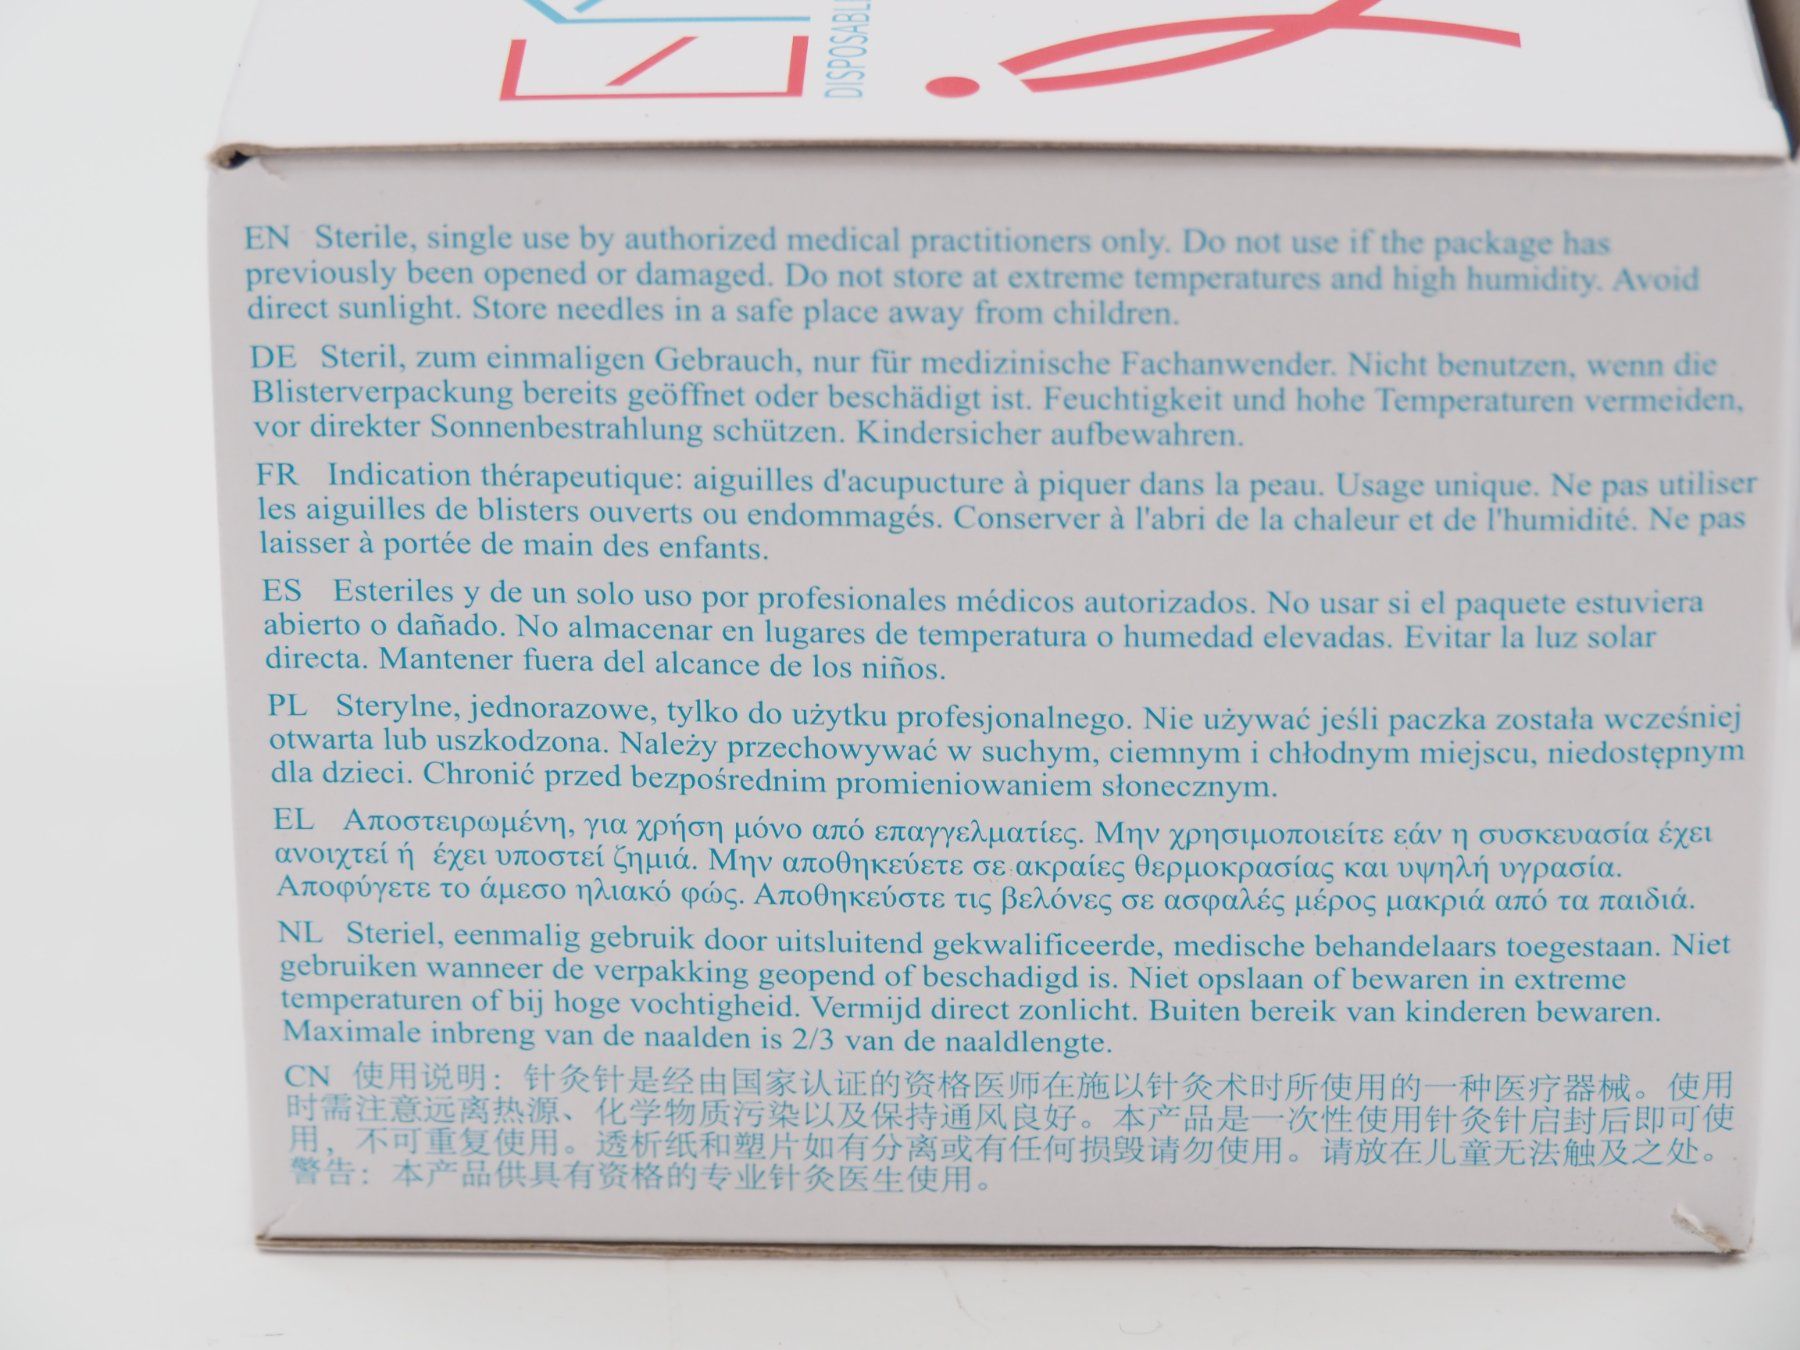 DISPOSABL
EN Sterile, single use by authorized medical practitioners only. Do not use if the package has
previously been opened or damaged. Do not store at extreme temperatures and high humidity. Avoid
direct sunlight. Store needles in a safe place away from children.
DE Steril, zum einmaligen Gebrauch, nur für medizinische Fachanwender. Nicht benutzen, wenn die
Blisterverpackung bereits geöffnet oder beschädigt ist. Feuchtigkeit und hohe Temperaturen vermeiden,
vor direkter Sonnenbestrahlung schützen. Kindersicher aufbewahren.
FR Indication thérapeutique: aiguilles d'acupucture à piquer dans la peau. Usage unique. Ne pas utiliser
les aiguilles de blisters ouverts ou endommagés. Conserver à l'abri de la chaleur et de l'humidité. Ne pas
laisser à portée de main des enfants.
ES Esteriles y de un solo uso por profesionales médicos autorizados. No usar si el paquete estuviera
abierto o dañado. No almacenar en lugares de temperatura o humedad elevadas. Evitar la luz solar
directa. Mantener fuera del alcance de los niños.
PL Sterylne, jednorazowe, tylko do użytku profesjonalnego. Nie używać jeśli paczka została wcześniej
otwarta lub uszkodzona. Należy przechowywać w suchym, ciemnym i chłodnym miejscu, niedostępnym
dla dzieci. Chronić przed bezpośrednim promieniowaniem słonecznym.
EL Αποστειρωμένη, για χρήση μόνο από επαγγελματίες. Μην χρησιμοποιείτε εάν η συσκευασία έχει
ανοιχτεί ή έχει υποστεί ζημιά. Μην αποθηκεύετε σε ακραίες θερμοκρασίας και υψηλή υγρασία.
Αποφύγετε το άμεσο ηλιακό φώς. Αποθηκεύστε τις βελόνες σε ασφαλές μέρος μακριά από τα παιδιά.
NL Steriel, eenmalig gebruik door uitsluitend gekwalificeerde, medische behandelaars toegestaan. Niet
gebruiken wanneer de verpakking geopend of beschadigd is. Niet opslaan of bewaren in extreme
temperaturen of bij hoge vochtigheid. Vermijd direct zonlicht. Buiten bereik van kinderen bewaren.
Maximale inbreng van de naalden is 2/3 van de naaldlengte.
CN 使用说明：针灸针是经由国家认证的资格医师在施以针灸术时所使用的一种医疗器械。使用
时需注意远离热源、化学物质污染以及保持通风良好。本产品是一次性使用针灸针启封后即可使
用，不可重复使用。透析纸和塑片如有分离或有任何损毁请勿使用。请放在儿童无法触及之处。
警告：本产品供具有资格的专业针灸医生使用。